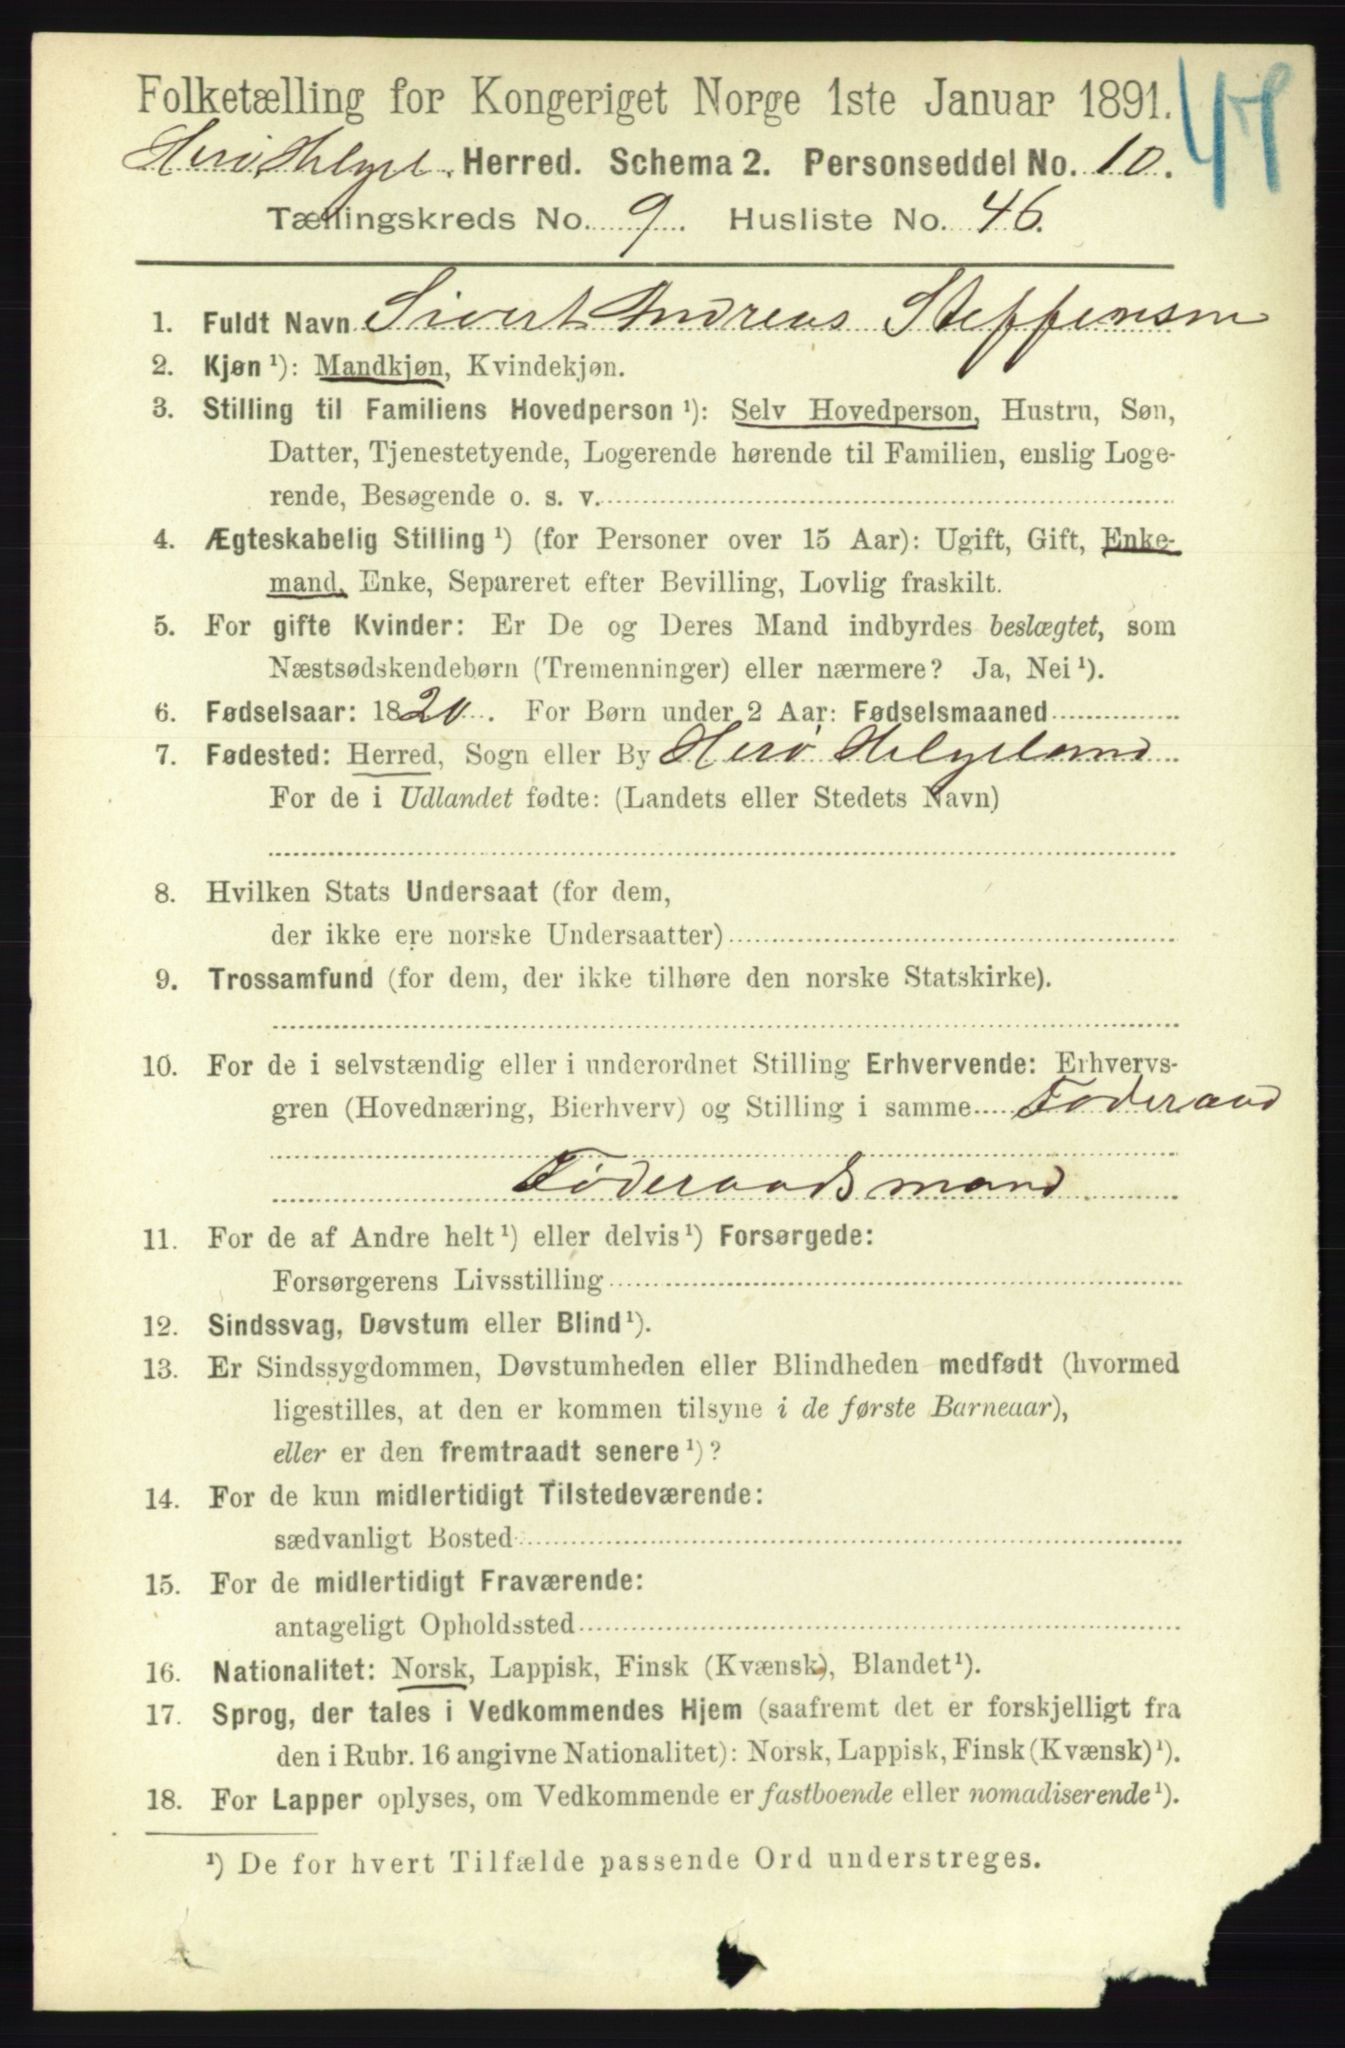 Folketælling for Kongeriget Norge 1ste Januar 1891.
Herø, Helgel. Herred. Schema 2. Personseddel No. 10.
Tællingskreds No. 9. Husliste No. 46.
1. Fuldt Navn Sivert Andreas Steffensen
2. Kjøn ¹): Mandkjøn, Kvindekjøn.
3. Stilling til Familiens Hovedperson ¹): Selv Hovedperson, Hustru, Søn,
Datter, Tjenestetyende, Logerende hørende til Familien, enslig Loge-
rende, Besøgende o. s. v.
4. Ægteskabelig Stilling ¹) (for Personer over 15 Aar): Ugift, Gift, Enke-
mand, Enke, Separeret efter Bevilling, Lovlig fraskilt.
5. For gifte Kvinder: Er De og Deres Mand indbyrdes beslægtet, som
Næstsødskendebørn (Tremenninger) eller nærmere? Ja, Nei ¹).
6. Fødselsaar: 1820. For Børn under 2 Aar: Fødselsmaaned
7. Fødested: Herred, Sogn eller By Herø Helgeland
For de i Udlandet fødte: (Landets eller Stedets Navn)
8. Hvilken Stats Undersaat (for dem,
der ikke ere norske Undersaatter)
9. Trossamfund (for dem, der ikke tilhøre den norske Statskirke).
10. For de i selvstændig eller i underordnet Stilling Erhvervende: Erhvervs-
gren (Hovednæring, Bierhverv) og Stilling i samme Føderaad
Føderaadsmand
11. For de af Andre helt ¹) eller delvis ¹) Forsørgede:
Forsørgerens Livsstilling
12. Sindssvag, Døvstum eller Blind ¹).
13. Er Sindssygdommen, Døvstumheden eller Blindheden medfødt (hvormed
ligestilles, at den er kommen tilsyne i de første Barneaar),
eller er den fremtraadt senere ¹)?
14. For de kun midlertidigt Tilstedeværende:
sædvanligt Bosted
15. For de midlertidigt Fraværende:
antageligt Opholdssted
16. Nationalitet: Norsk, Lappisk, Finsk (Kvænsk), Blandet ¹).
17. Sprog, der tales i Vedkommendes Hjem (saafremt det er forskjelligt fra
den i Rubr. 16 angivne Nationalitet): Norsk, Lappisk, Finsk (Kvænsk) ¹).
18. For Lapper oplyses, om Vedkommende er fastboende eller nomadiserende ¹).
¹) De for hvert Tilfælde passende Ord understreges.